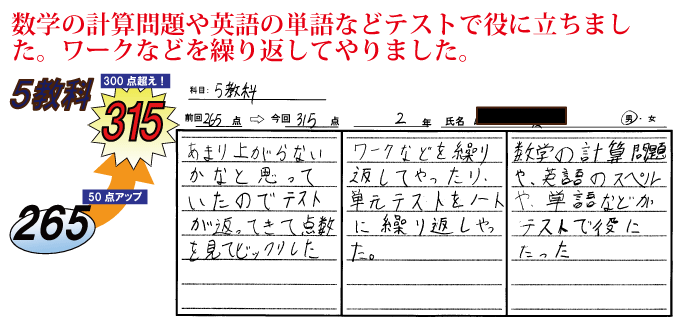 数学の計算問題や英語の単語などテストで役に立ちまし
た。ワークなどを繰り返してやりました。
5教科
300 点超え！
315
50 点アップ
265
科目: 5教科
前回265 点 ⇨ 今回 315 点 2 年 氏名 男・女
あまり上がらない
かなと思って
いたのでテスト
が返ってきて点数
を見てビックリした
ワークなどを繰り
返してやったり、
単元テストをノート
に繰り返しやっ
た。
数学の計算問題
や、英語のスペル
や、単語などが
テストで役に
たった